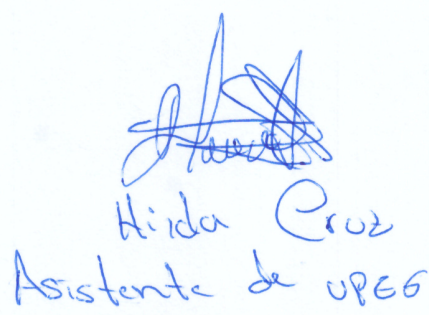 Hirda Cruz
Asistente de UPEG